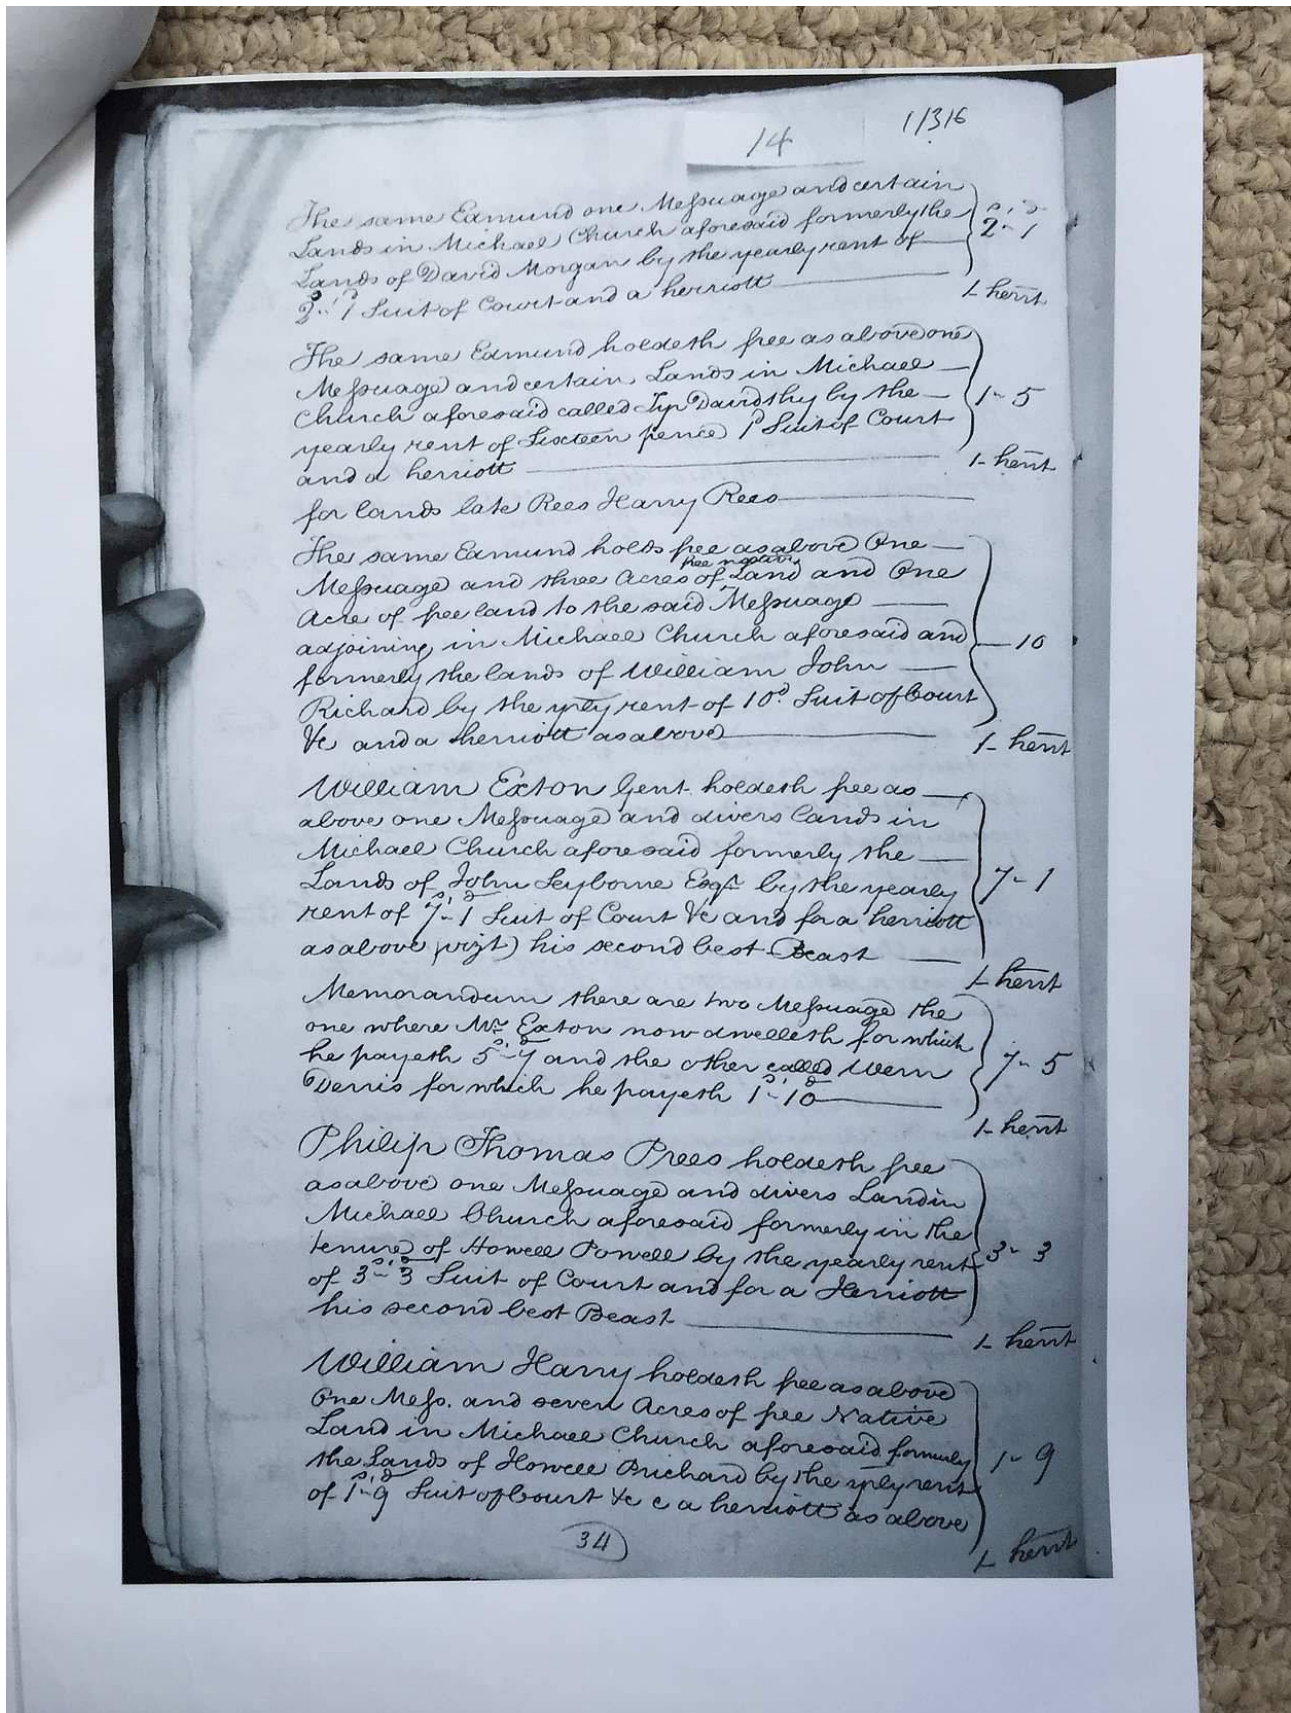 14
1/316
The same Edmund one Messuage and certain
Lands in Michael Church aforesaid formerly the
Lands of David Morgan by the yearly rent of
2s.. 1d Suit of Court and a herriott
2s - 1d
1 - herrt
The same Edmund holdeth free as above one
Messuage and certain Lands in Michael
Church aforesaid called Tyr Davidthy by the
yearly rent of Sixteen pence 1d Suit of Court
and a herriott
1 - 5
1 - herrt
for lands late Rees Harry Rees
The same Edmund holds free as above One
Messuage and three Acres of free native Land and One
Acre of free land to the said Messuage
adjoining in Michael Church aforesaid and
formerly the lands of William John
Richard by the yrly rent of 10d. Suit of Court
&c and a herriott as above
- 10
1 - herrt
William Exton Gent. holdeth free as
above one Messuage and divers lands in
Michael Church aforesaid formerly the
Lands of John Seyborne Esqr. by the yearly
rent of 7s - 1d Suit of Court &c and for a herriott
as above (vizt) his second best Beast
7 - 1
1 - herrt
Memorandum there are two Messuage the
one where Mr. Exton now dwelleth for which
he payeth 5s - 7d and the other called Wern
Derris for which he payeth 1s - 10d
7 - 5
1 - herrt
Philip Thomas Prees holdeth free
as above one Messuage and divers Land in
Michael Church aforesaid formerly in the
tenure of Howell Powell by the yearly rent
of 3s - 3d Suit of Court and for a Herriott
his second best Beast
3 - 3
1 - herrt
William Harry holdeth free as above
One Mess. and seven Acres of free Native
Land in Michael Church aforesaid formerly
the Lands of Howell Prichard by the yrly rent
of 1s - 9d Suit of Court &c & a herriott as above
1 - 9
1 - herrt
34